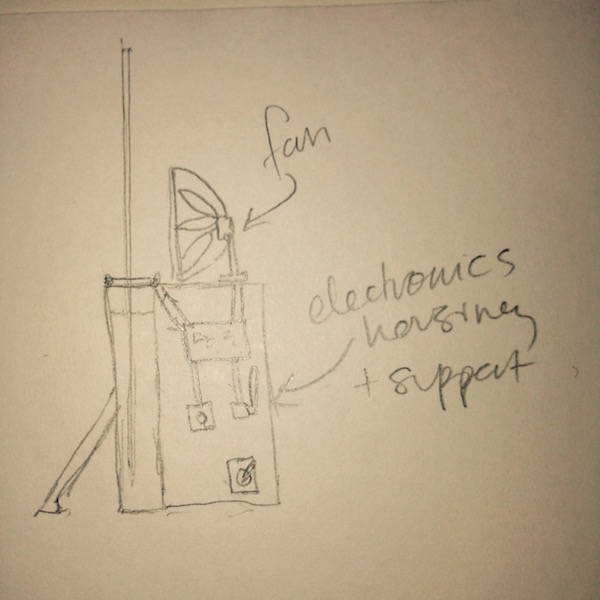 fan
electronics
housing
+ support